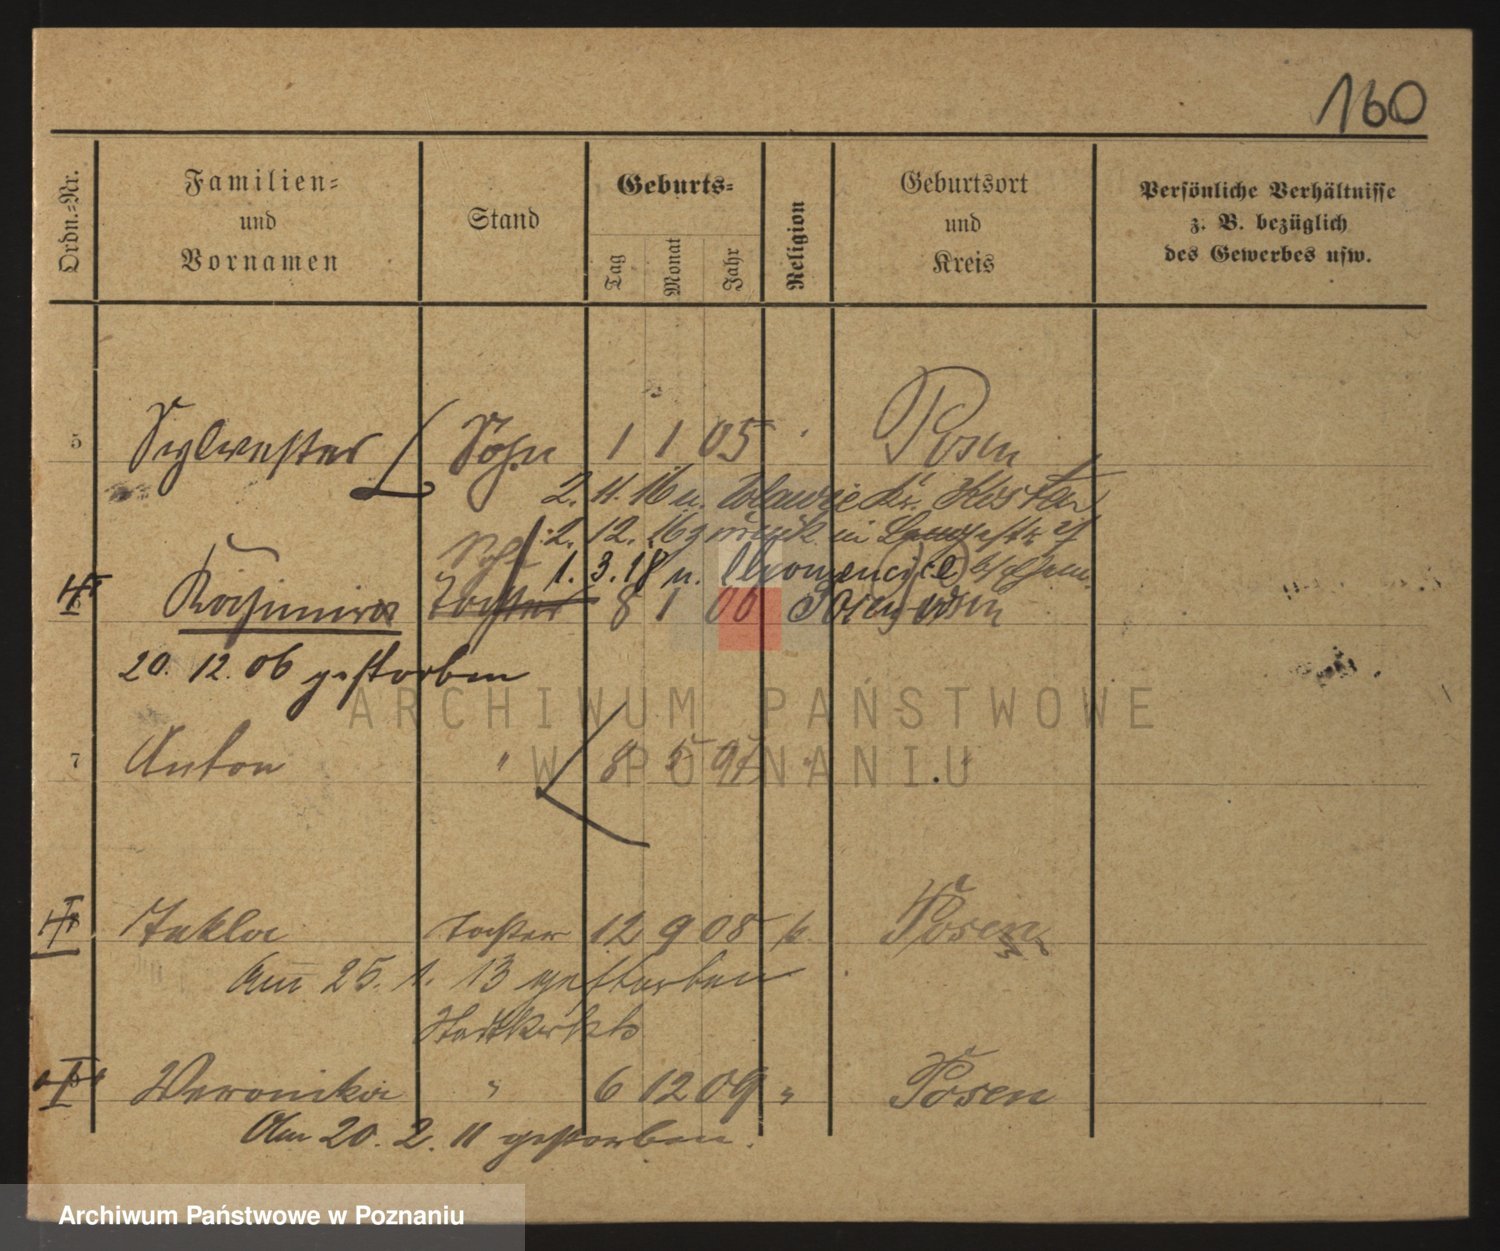 160
Ordn.-Nr.
Familien-
und
Vornamen
Stand
Geburts-
Tag
Monat
Jahr
Religion
Geburtsort
und
Kreis
Persönliche Verhältnisse
z. B. bezüglich
des Gewerbes usw.
5 Sylvester Sohn 1 1 05 Posen
2. 11. 16 n. Kr. Kosten
2. 12. 16 zurück
1. 3. 18 n.
Kasimira Tochter 8 1 06 Posen
20. 12. 06 gestorben
7 Anton " 8 5 97 "
Tekla Tochter 12 9 08 k. Posen
Am 25. 1. 13 gestorben
Weronika " 6 12 09 " Posen
Am 20. 2. 11 gestorben.
ARCHIWUM PAŃSTWOWE
W POZNANIU
Archiwum Państwowe w Poznaniu